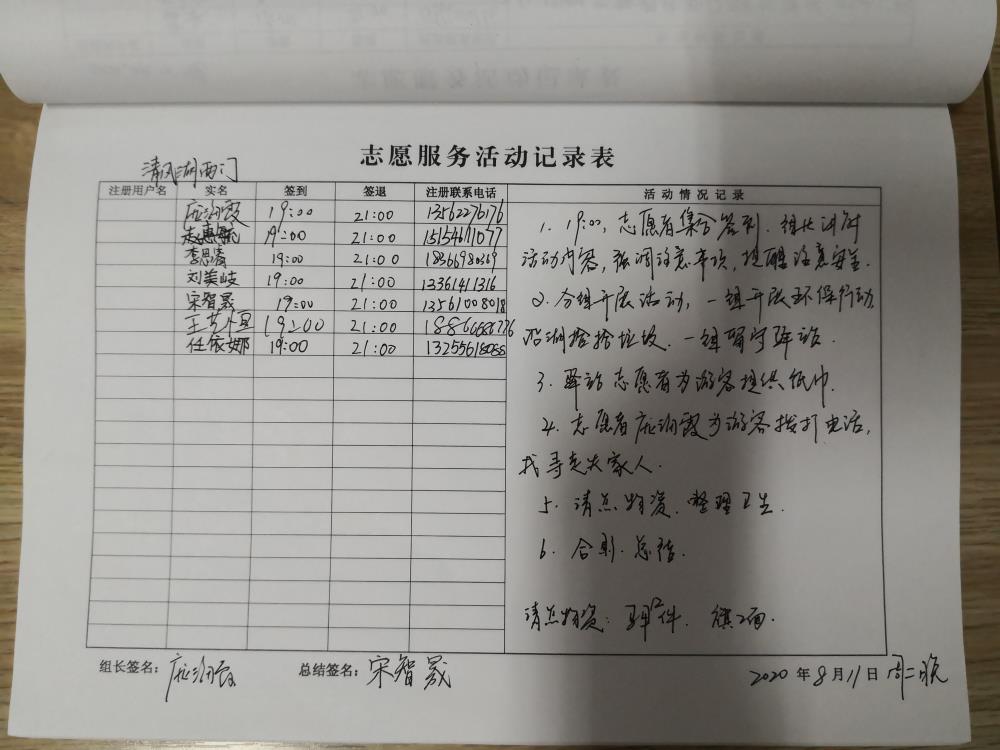 志愿服务活动记录表
清风湖西门
注册用户名 实名 签到 签退 注册联系电话 活动情况记录
庞润霞 19:00 21:00 13562276176
赵惠航 19:00 21:00 15154611077
李思睿 19:00 21:00 18366980369
刘美岐 19:00 21:00 13361411316
宋智晟 19:00 21:00 13561008018
王艺恒 19:00 21:00
任依娜 19:00 21:00 13255618088
1. 19:00,志愿者集合签到.组长讲解
活动内容,强调注意事项,提醒注意安全.
2. 分组开展活动,一组开展环保行动,
沿湖捡拾垃圾.一组留守驿站.
3. 驿站志愿者为游客提供纸巾.
4. 志愿者庞润霞为游客拨打电话,
找寻走失家人.
5. 清点物资.整理卫生.
6. 合影.总结.
清点物资: 马甲12件. 旗2面.
组长签名: 庞润霞 总结签名: 宋智晟 2020年8月11日 周二晚